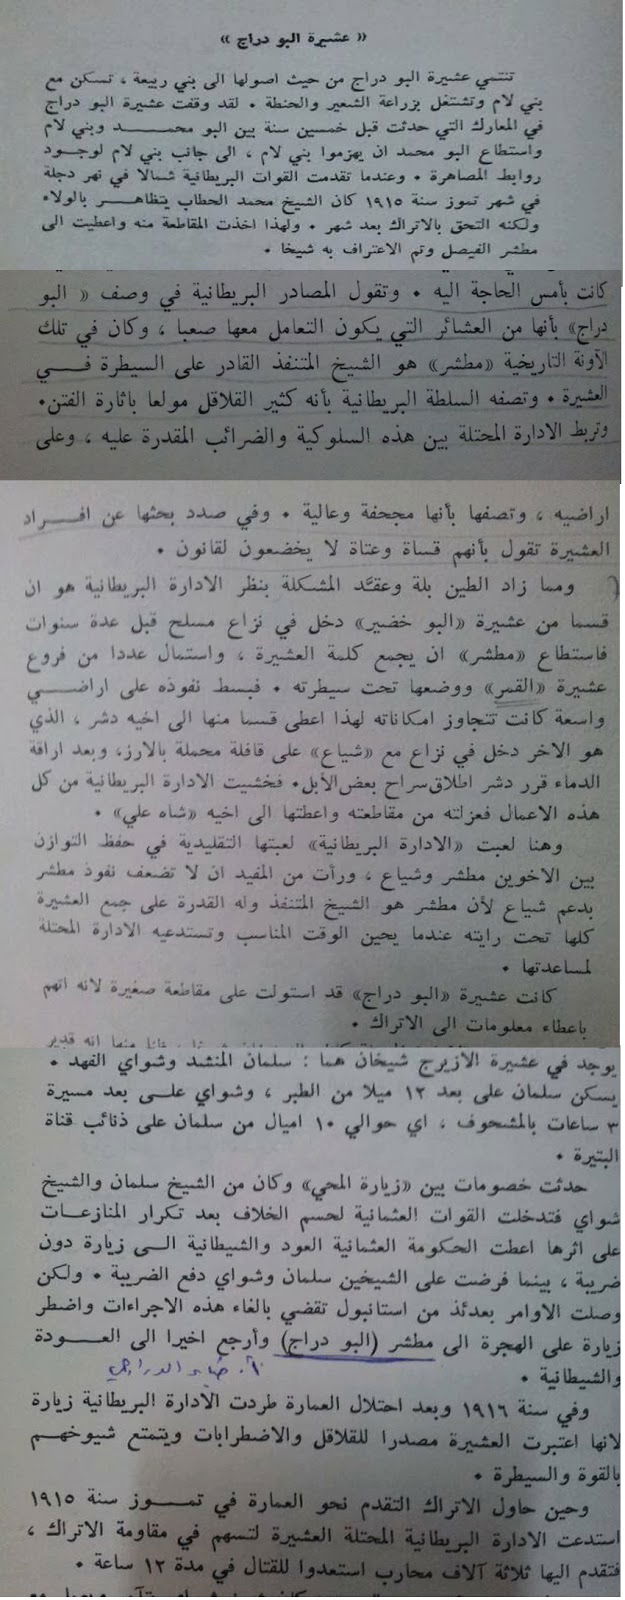 « عشيرة البو دراج »
تنتمي عشيرة البو دراج من حيث اصولها الى بني ربيعة ، تسكن مع
بني لام وتشتغل بزراعة الشعير والحنطة ٠ لقد وقفت عشيرة البو دراج
في المعارك التي حدثت قبل خمسين سنة بين البو محمد وبني لام
واستطاع البو محمد ان يهزموا بني لام ، الى جانب بني لام لوجود
روابط المصاهرة ٠ وعندما تقدمت القوات البريطانية شمالا في نهر دجلة
في شهر تموز سنة ١٩١٥ كان الشيخ محمد الحطاب يتظاهر بالولاء
ولكنه التحق بالاتراك بعد شهر ٠ ولهذا اخذت المقاطعة منه واعطيت الى
مطشر الفيصل وتم الاعتراف به شيخا ٠
كانت بأمس الحاجة اليه ٠ وتقول المصادر البريطانية في وصف « البو
دراج» بأنها من العشائر التي يكون التعامل معها صعبا ، وكان في تلك
الآونة التاريخية «مطشر» هو الشيخ المتنفذ القادر على السيطرة في
العشيرة ٠ وتصفه السلطة البريطانية بأنه كثير القلاقل مولعا باثارة الفتن٠
وتربط الادارة المحتلة بين هذه السلوكية والضرائب المقدرة عليه ، وعلى
اراضيه ، وتصفها بأنها مجحفة وعالية ٠ وفي صدد بحثها عن افراد
العشيرة تقول بأنهم قساة وعتاة لا يخضعون لقانون ٠
ومما زاد الطين بلة وعقَّد المشكلة بنظر الادارة البريطانية هو ان
قسما من عشيرة «البو خضير» دخل في نزاع مسلح قبل عدة سنوات
فاستطاع «مطشر» ان يجمع كلمة العشيرة ، واستمال عددا من فروع
عشيرة «القمر» ووضعها تحت سيطرته ٠ فبسط نفوذه على اراضي
واسعة كانت تتجاوز امكاناته لهذا اعطى قسما منها الى اخيه دشر ، الذي
هو الاخر دخل في نزاع مع «شياع» على قافلة محملة بالارز، وبعد اراقة
الدماء قرر دشر اطلاق سراح بعض الأبل٠ فخشيت الادارة البريطانية من كل
هذه الاعمال فعزلته من مقاطعته واعطتها الى اخيه «شاه علي» ٠
وهنا لعبت «الادارة البريطانية» لعبتها التقليدية في حفظ التوازن
بين الاخوين مطشر وشياع ، ورأت من المفيد ان لا تضعف نفوذ مطشر
بدعم شياع لأن مطشر هو الشيخ المتنفذ وله القدرة على جمع العشيرة
كلها تحت رايته عندما يحين الوقت المناسب وتستدعيه الادارة المحتلة
لمساعدتها ٠
كانت عشيرة «البو دراج» قد استولت على مقاطعة صغيرة لانه اتهم
باعطاء معلومات الى الاتراك ٠
يوجد في عشيرة الازيرج شيخان هما : سلمان المنشد وشواي الفهد ٠
يسكن سلمان على بعد ١٢ ميلا من الطبر ، وشواي على بعد مسيرة
٣ ساعات بالمشحوف ، اي حوالي ١٠ اميال من سلمان على ذنائب قناة
البتيرة ٠
حدثت خصومات بين «زيارة المحي» وكان من الشيخ سلمان والشيخ
شواي فتدخلت القوات العثمانية لحسم الخلاف بعد تكرار المنازعات
على اثرها اعطت الحكومة العثمانية العود والشيطانية الى زيارة دون
ضريبة ، بينما فرضت على الشيخين سلمان وشواي دفع الضريبة ٠ ولكن
وصلت الاوامر بعدئذ من استانبول تقضي بالغاء هذه الاجراءات واضطر
زيارة على الهجرة الى مطشر (البو دراج) وأرجع اخيرا الى العودة
والشيطانية ٠
وفي سنة ١٩١٦ وبعد احتلال العمارة طردت الادارة البريطانية زيارة
لانها اعتبرت العشيرة مصدرا للقلاقل والاضطرابات ويتمتع شيوخهم
بالقوة والسيطرة ٠
وحين حاول الاتراك التقدم نحو العمارة في تموز سنة ١٩١٥
استدعت الادارة البريطانية المحتلة العشيرة لتسهم في مقاومة الاتراك ،
فتقدم اليها ثلاثة آلاف محارب استعدوا للقتال في مدة ١٢ ساعة ٠